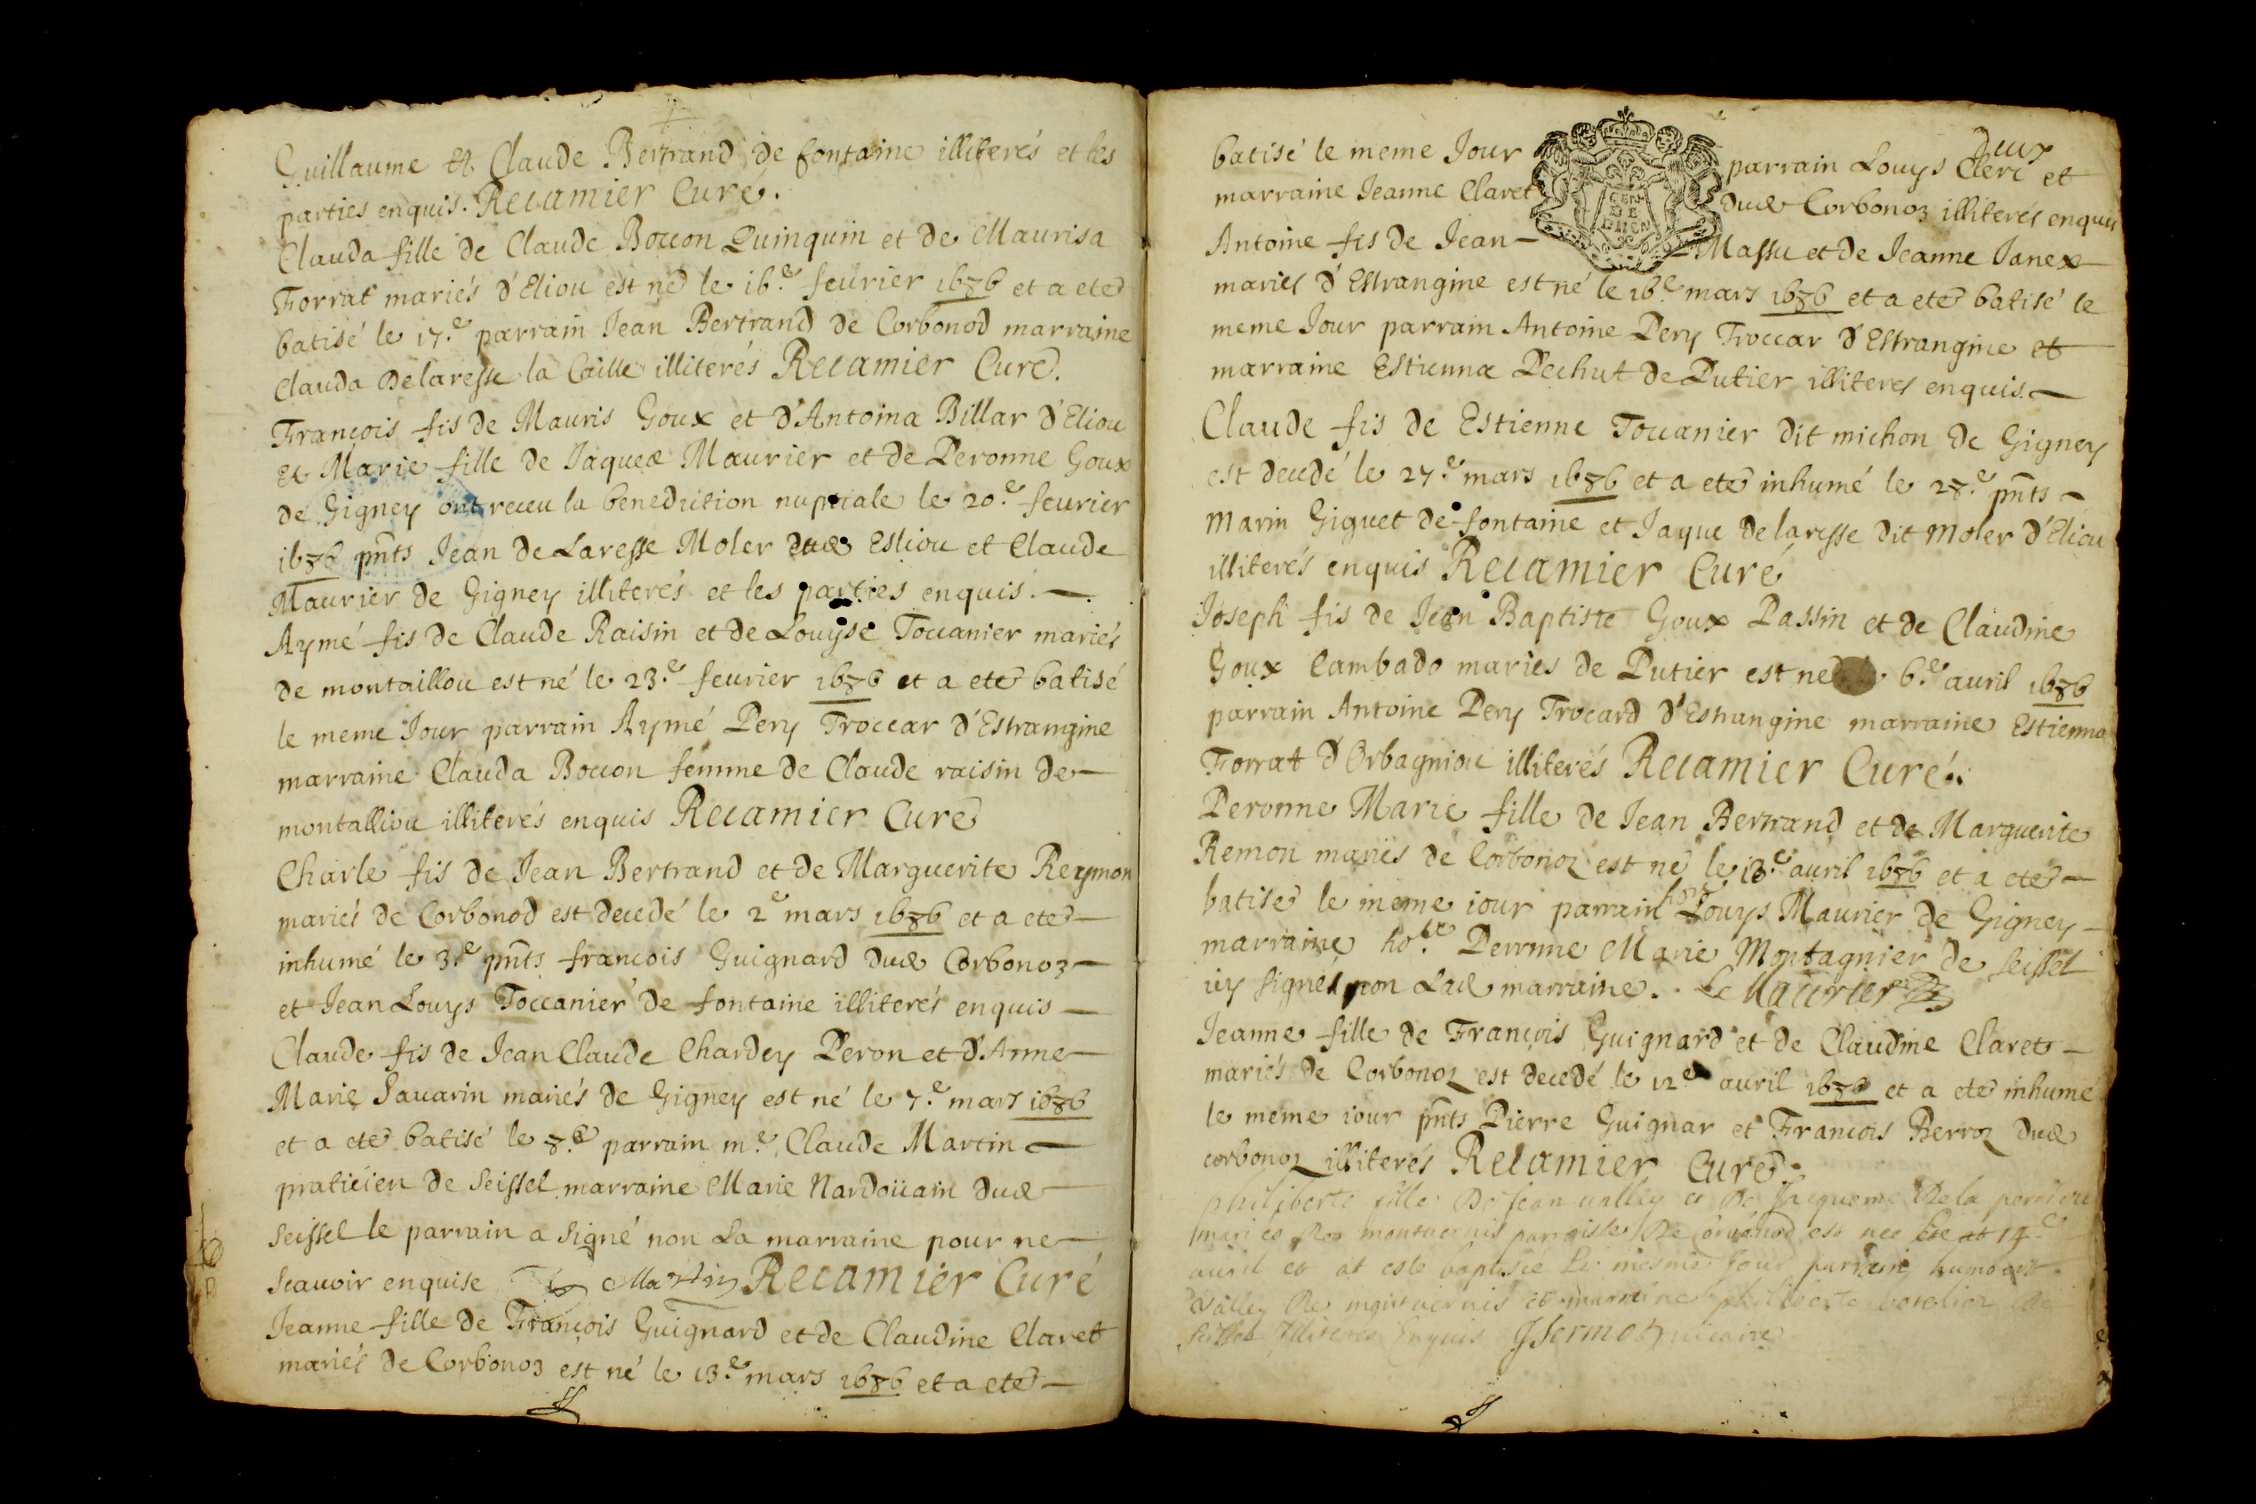 Guillaume et Claude Bertrand de fontaine illiterés et les
parties enquis. Recamier Curé.
Clauda fille de Claude Boccon Quinquin et de Maurisa
Forrat mariés d'Eliou est né le 16.e feurier 1686 et a eté
batisé le 17.e parrain Jean Bertrand de Corbonod marraine
Clauda Delaresse la Caille illiterés Recamier Curé.
François fis de Mauris Goux et d'Antoina Billar d'Eliou
et Marie fille de Jaquea Maurier et de Peronne Goux
de Gigney ont receu la benediction nuptiale le 20.e feurier
1686 pnts Jean de Laresse Moler dud Esliou et Claude
Maurier de Gigney illiterés et les parties enquis.
Aymé fis de Claude Raisin et de Louyse Toccanier mariés
de montaillou est né le 23.e feurier 1686 et a eté batisé
le meme Jour parrain Aymé Pery Troccar d'Estrangine
marraine Clauda Boccon femme de Claude raisin de
montalliou illiterés enquis Recamier Curé
Charle fis de Jean Bertrand et de Marguerite Reymon
mariés de Corbonod est decedé le 2e mars 1686 et a eté
inhumé le 3.e pnts francois Guignard dud Corbonoz
et Jean Louys Toccanier de fontaine illiterés enquis
Claude fis de Jean Claude Chardey Peron et d'Anne
Marie Sauarin mariés de Gigney est né le 7.e mars 1686
et a eté batisé le 8.e parrain m.e Claude Martin
praticien de Seissel marraine Marie Nardoüain dud
Seissel le parrain a signé non La marraine pour ne
Scauoir enquise Martin Recamier Curé
Jeanne fille de François Guignard et de Claudine Claret
mariés de Corbonoz est né le 13.e mars 1686 et a eté
deux
batisé le meme Jour parrain Louys Clerc et
marraine Jeanne Claret dud Corbonoz illiterés enquis
GEN DE DIION
Antoine fis de Jean Massu et de Jeanne Janex
mariés d'Estrangine est né le 16.e mars 1686 et a eté batisé le
meme Jour parrain Antoine Pery Troccar d'Estrangine et
marraine Estienna Pechut de Putier illiterés enquis.
Claude fis de Estienne Toccanier dit michon de Gigney
est decedé le 27.e mars 1686 et a eté inhumé le 28.e pnts
Marin Giguet de fontaine et Jaque delaresse dit moler d'Eliou
illiterés enquis Recamier Curé
Joseph fis de Jean Baptiste Goux Passin et de Claudine
Goux Cambado mariés de Putier est né 6.e auril 1686
parrain Antoine Pery Trocard d'Estrangine marraine Estienna
Forrat d'Orbagniou illiterés Recamier Curé.
Peronne Marie fille de Jean Bertrand et de Marguerite
Remon mariés de Corbonoz est né le 13.e auril 1686 et a eté
batisé le meme iour parrain Louys Maurier de Gigney
marraine ho.le Perrnne Marie Montagnier de Seissel
icy signés non Lad marraine. Le Maurier
Jeanne fille de François Guignard et de Claudine Claret
mariés de Corbonoz est decedé le 12e auril 1686 et a eté inhumé
le meme iour pnts Pierre Guignar et Francois Berroz dud
corbonoz illiterés Recamier Curé
philiberte fille De Jean valley et De Jaqueme De la
mariés De montuernis parroisse De Corbonod est nee le 14.e
auril et at esté baptisée le mesme Jour parrain humbert
Valley De montuernis et marraine philiberte De
Seissel Illiteres Enquis Jsermoz uicaire